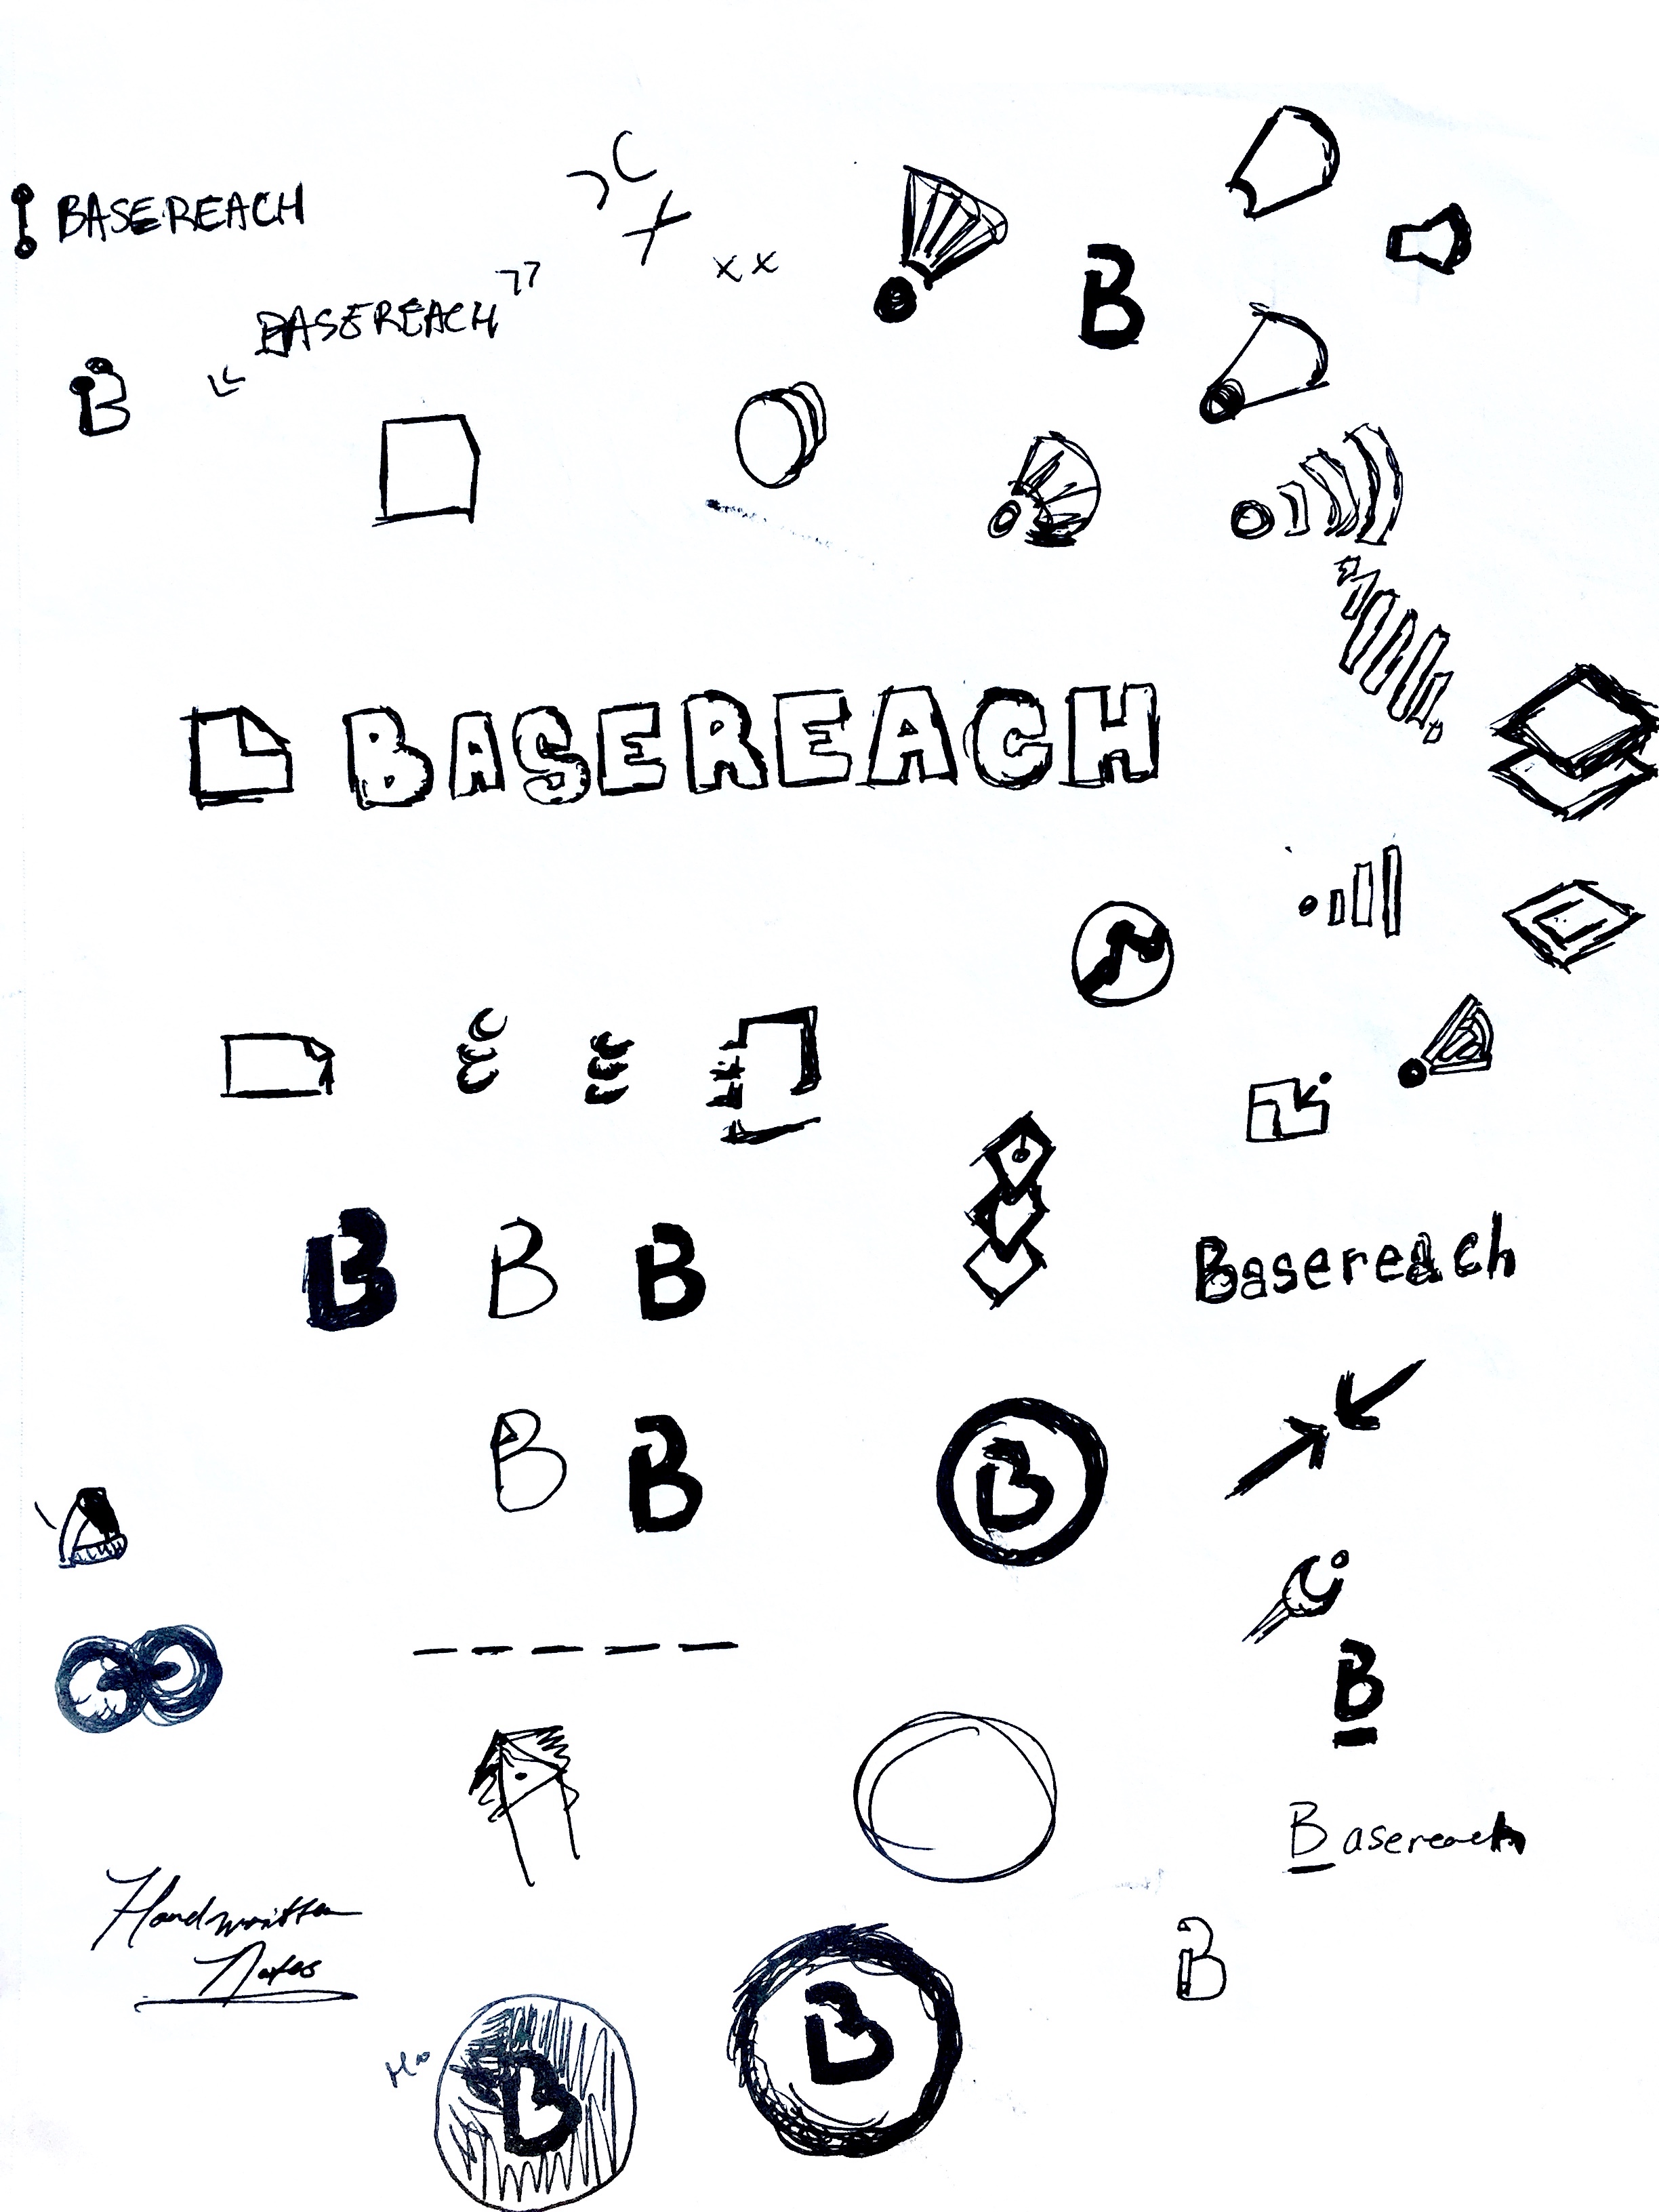 BASEREACH
BASEREACH
x x
B
B
BASEREACH
B B B
Basereach
B B
B
B
Basereach
Handwritten
Notes
B
B
B